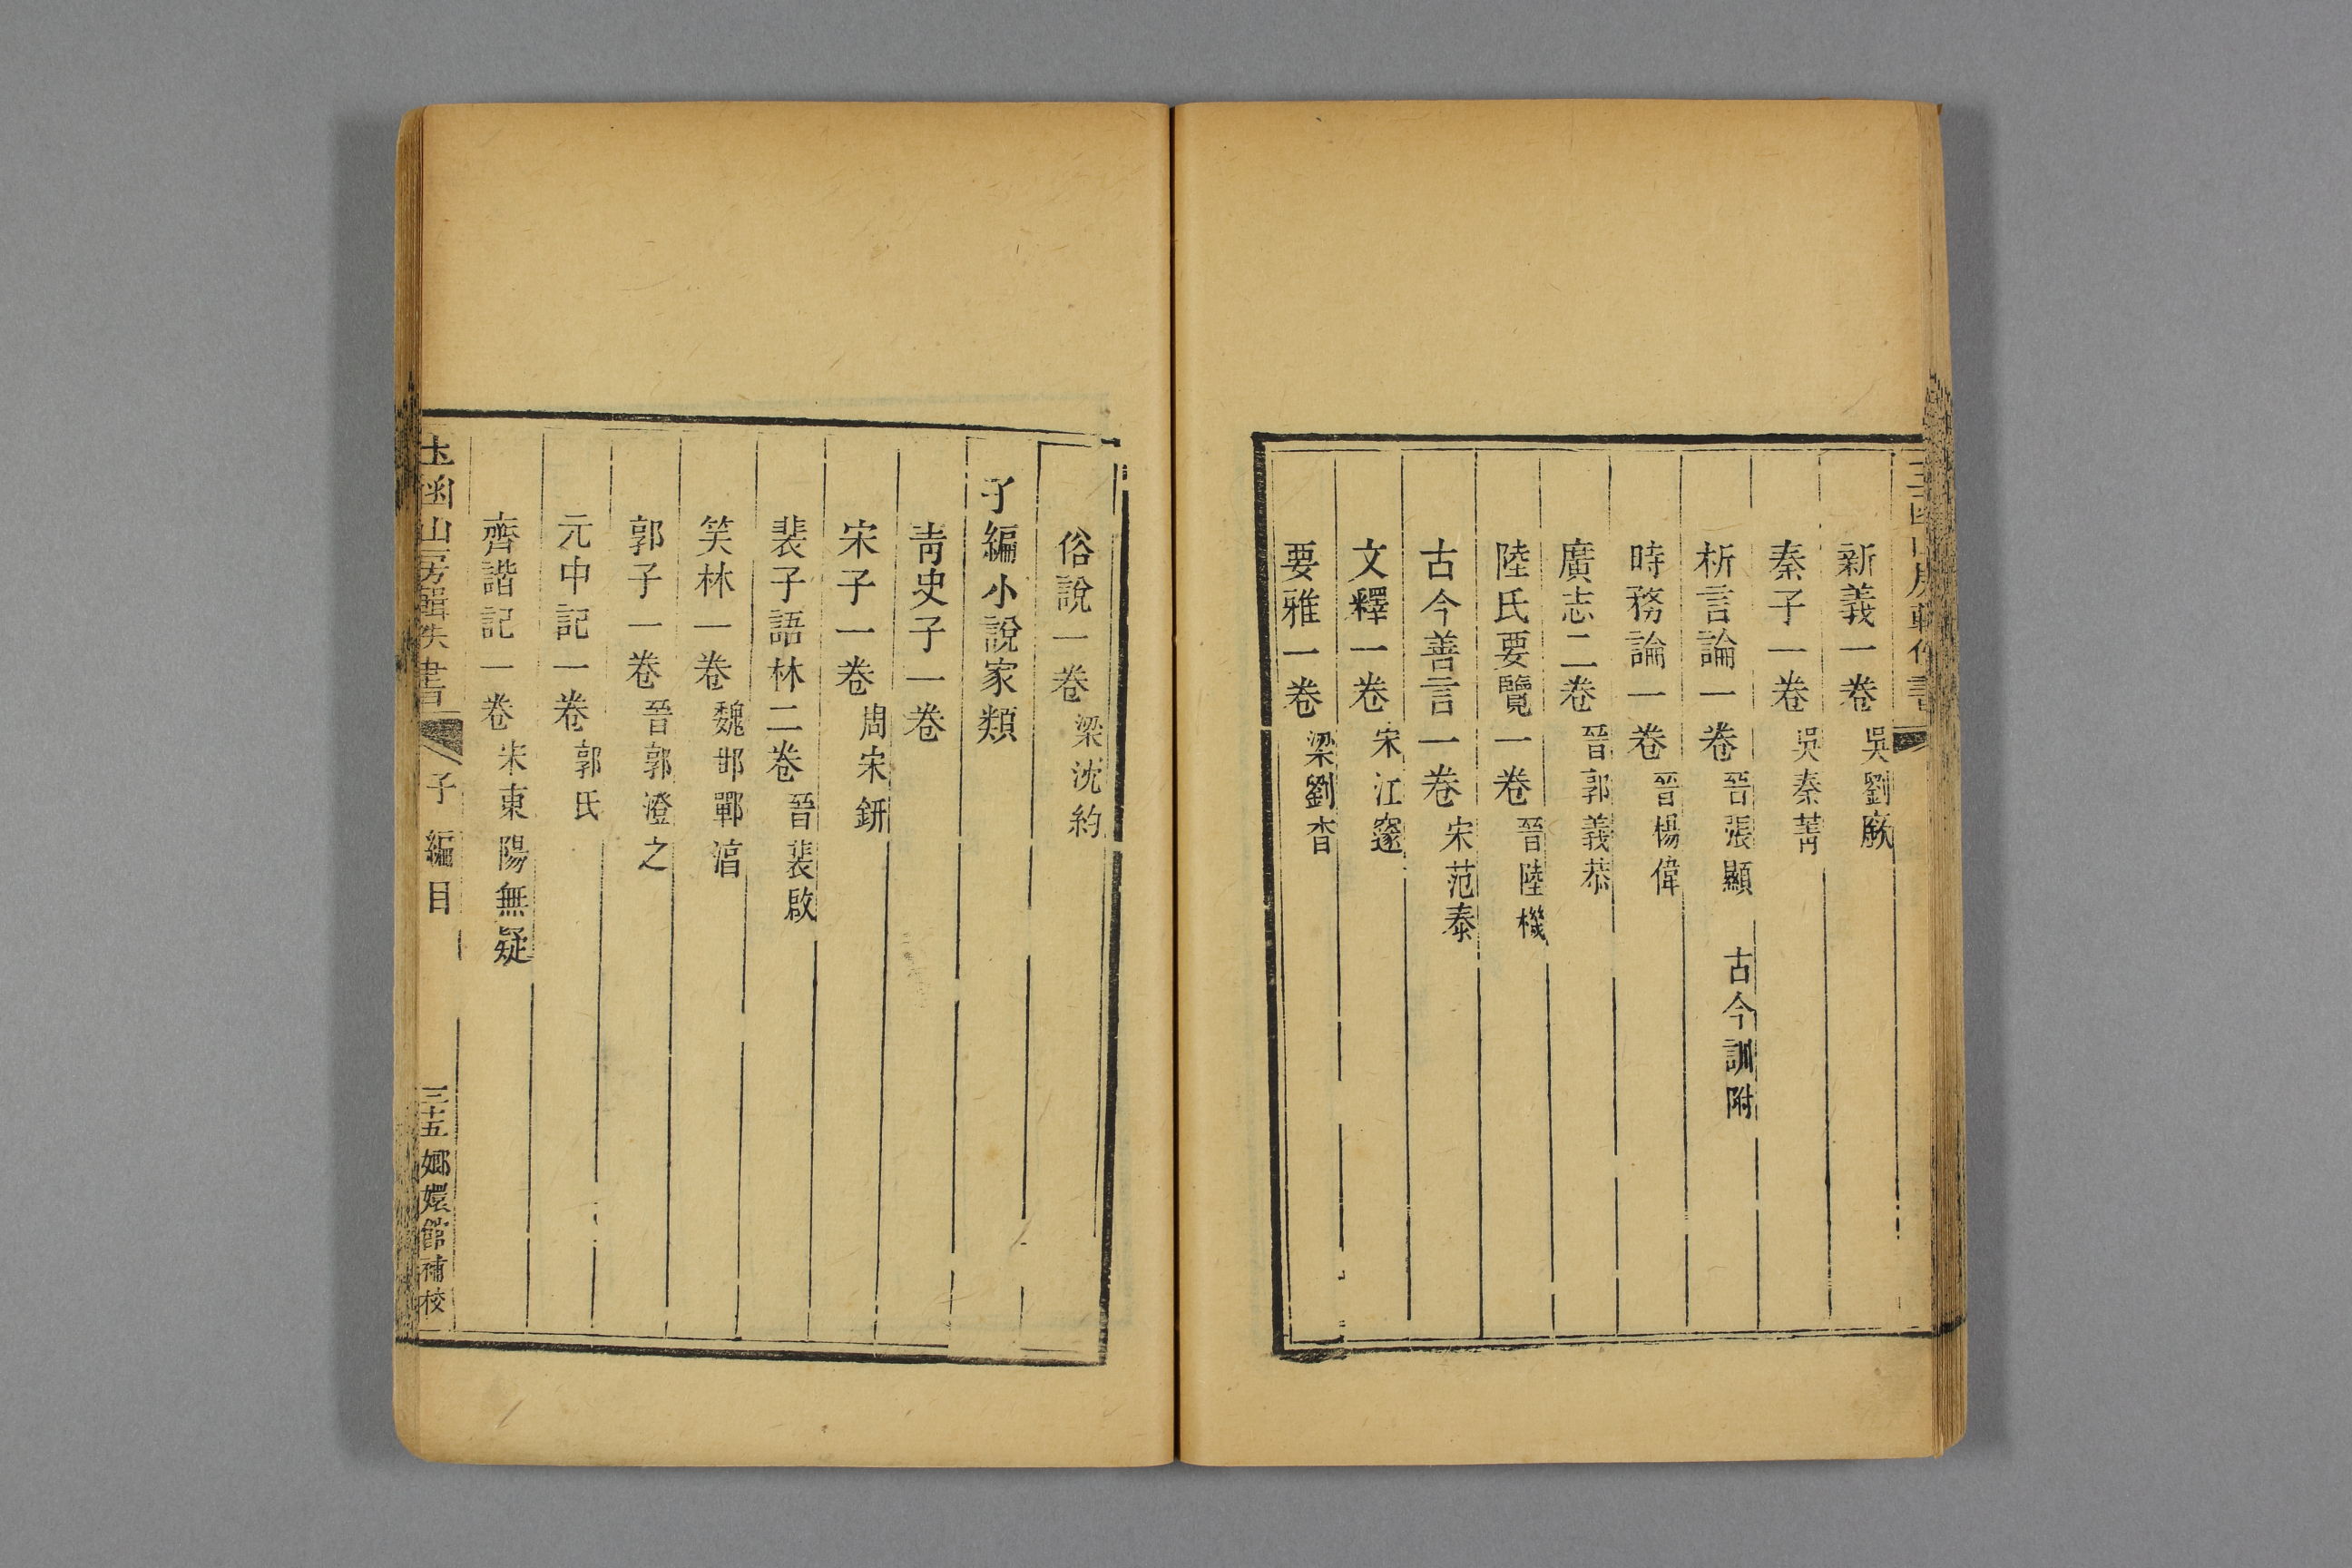 新義一卷 吳劉廞
秦子一卷 吳秦菁
析言論一卷 晉張顯 古今訓附
時務論一卷 晉楊偉
廣志二卷 晉郭義恭
陸氏要覽一卷 晉陸機
古今善言一卷 宋范泰
文釋一卷 宋江邃
要雅一卷 梁劉杳
俗說一卷 梁沈約
子編小說家類
青史子一卷
宋子一卷 周宋鈃
裴子語林二卷 晉裴啟
笑林一卷 魏邯鄲淳
郭子一卷 晉郭澄之
元中記一卷 郭氏
齊諧記一卷 宋東陽無疑
玉函山房輯佚書 子編目 三十五 嫏嬛館補校